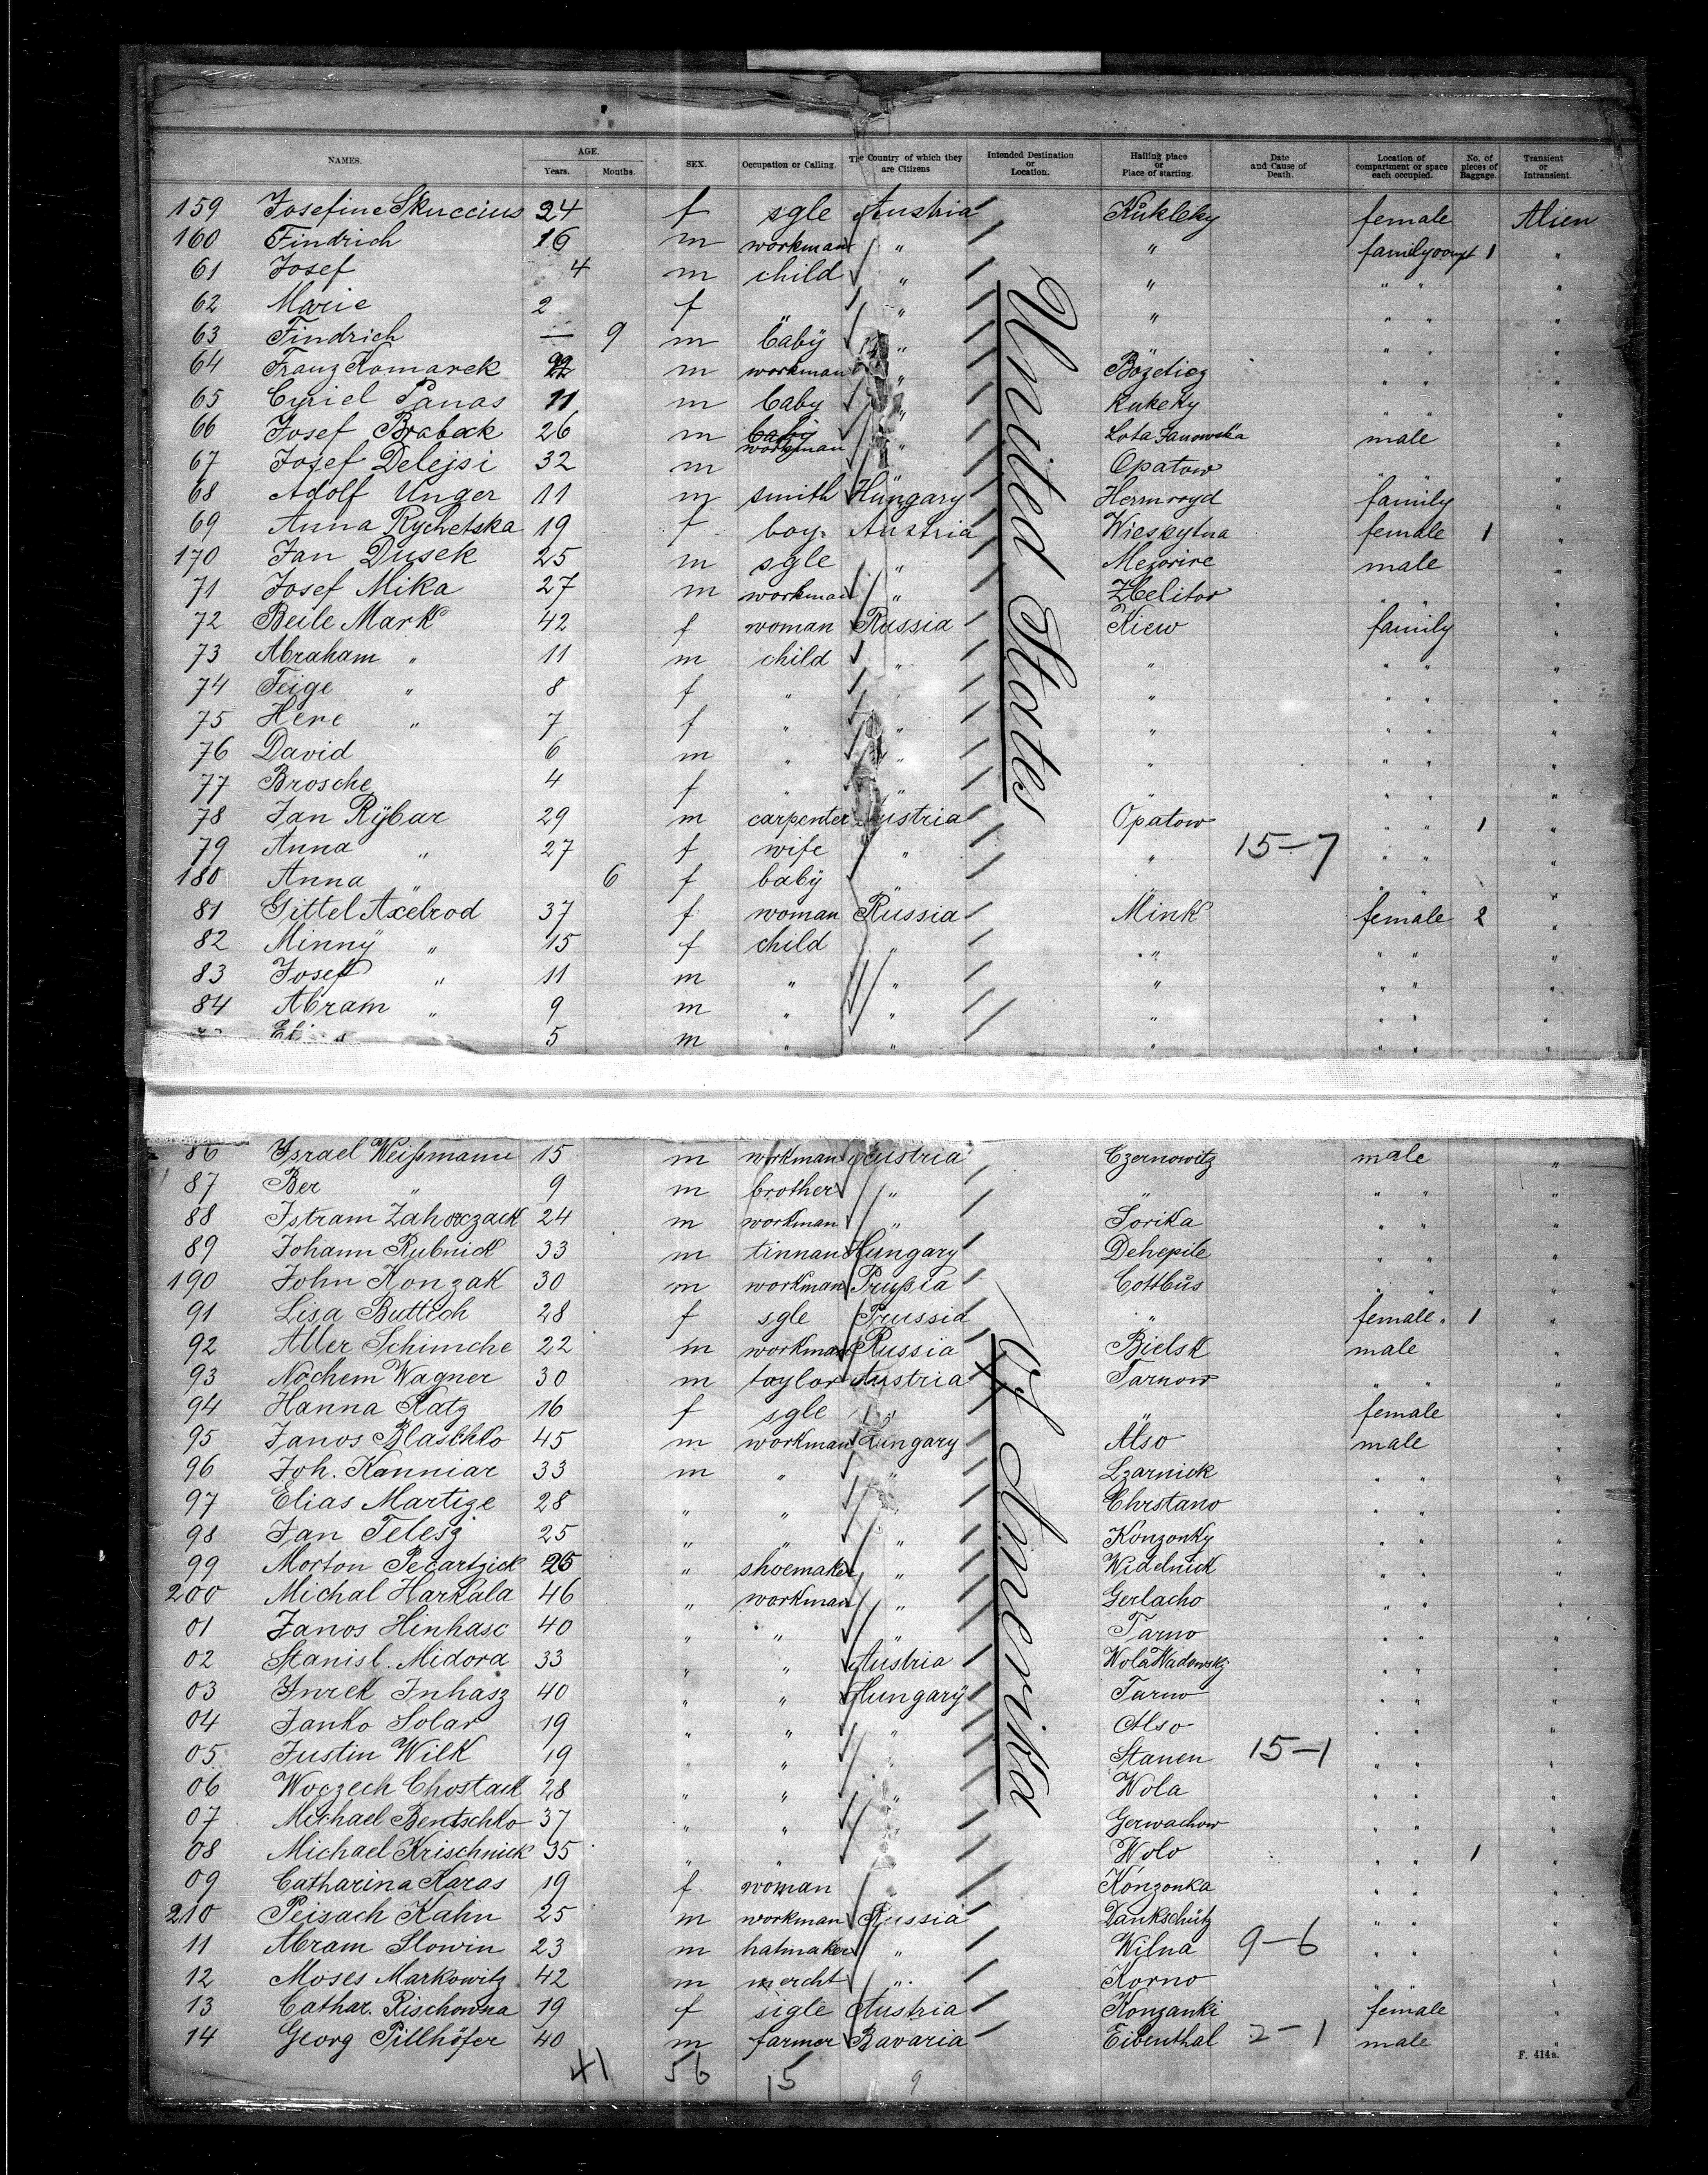 NAMES. AGE. Years. Months. SEX. Occupation or Calling. The Country of which they are Citizens Intended Destination or Location. Hailing place or Place of starting. Date and Cause of Death. Location of compartment or space each occupied. No. of pieces of Baggage. Transient or Intransient.
159 Josefine Skuccius 24 f sgle Austria Kukleky female Alien
160 Findrich 16 m workman " " family 1 "
61 Josef 4 m child " " " " "
62 Marie 2 f " " " " " "
63 Findrich — 9 m baby " " " "
64 Franz Komarek 22 m workman " Bozdicz " " "
65 Cyriel Panas 11 m baby " Kukeky " " "
66 Josef Braback 26 m baby workman " Lota Janowska male "
67 Josef Delejsi 32 m " Opatow " " "
68 Adolf Unger 11 m smith Hungary Hermroyd family "
69 Anna Rychetska 19 f boy. Austria Wieskytna female 1 "
170 Jan Dusek 25 m sgle " Mezorire male "
71 Josef Mika 27 m workman " Zbelitor " " "
72 Beile Mark 42 f woman Russia Kiew family "
73 Abraham " 11 m child " " " " "
74 Feige " 8 f " " " " " "
75 Here " 7 f " " " " " "
76 David 6 m " " " " " "
77 Brosche 4 f " " " " " "
78 Jan Rÿbar 29 m carpenter Austria Opatow " " 1 "
79 Anna " 27 f wife " " 15-7 " " "
180 Anna " 6 f baby " " " " "
81 Gittel Axelrod 37 f woman Russia Mink female 2 "
82 Minnÿ " 15 f child " " " " "
83 Josef " 11 m " " " " " "
84 Abram " 9 m " " " " " "
5 m " " " " " "
86 Israel Weißmann 15 m workman Austria Czernowitz male "
87 Ber " 9 m brother " " " " "
88 Istram Zahorczack 24 m workman " Sorika " " "
89 Johann Rubnick 33 m tinnan Hungary Dehepile " " "
190 John Konzak 30 m workman Prußia Cottbus " " "
91 Lisa Buttich 28 f sgle Prussia " female " 1 "
92 Aller Schimche 22 m workman Russia Bielsk male "
93 Nochem Wagner 30 m taylor Austria Tarnow " " "
94 Hanna Katz 16 f sgle " " female "
95 Janos Blaschko 45 m workman Hungary Also male "
96 Joh. Kanniar 33 m " " Lzarnick " " "
97 Elias Martize 28 " " " Chrstano " " "
98 Jan Telesz 25 " " " Konzonky " " "
99 Morton Pecartzick 25 " shoemaker " Widelnick " " "
200 Michal Harkala 46 " workman " Gerlacho " " "
01 Janos Hinhasc 40 " " " Tarno " " "
02 Stanisl. Midora 33 " " Austria Wola Wadowsky " " "
03 Jurek Inhasz 40 " " Hungary Tarno " " "
04 Janko Solar 19 " " " Also " " "
05 Justin Wilk 19 " " " Stanen 15-1 " " "
06 Woczech Chostack 28 " " " Wola " " "
07 Michael Bentschko 37 " " " Gerwachow " " "
08 Michael Krischnick 35 " " " Wolo " " 1 "
09 Catharina Karas 19 f woman " Konzonka " " "
210 Peisach Kahn 25 m workman Russia Dankschütz " " "
11 Abram Slowin 23 m hatmaker " Wilna 9-6 " " "
12 Moses Markowitz 42 m mercht " Korno " " "
13 Cathar. Rischowna 19 f sigle Austria Konzanki female "
14 Georg Pillhöfer 40 m farmer Bavaria Eibenthal 2-1 male "
United States of Amerika
41 56 15 9
F. 414a.